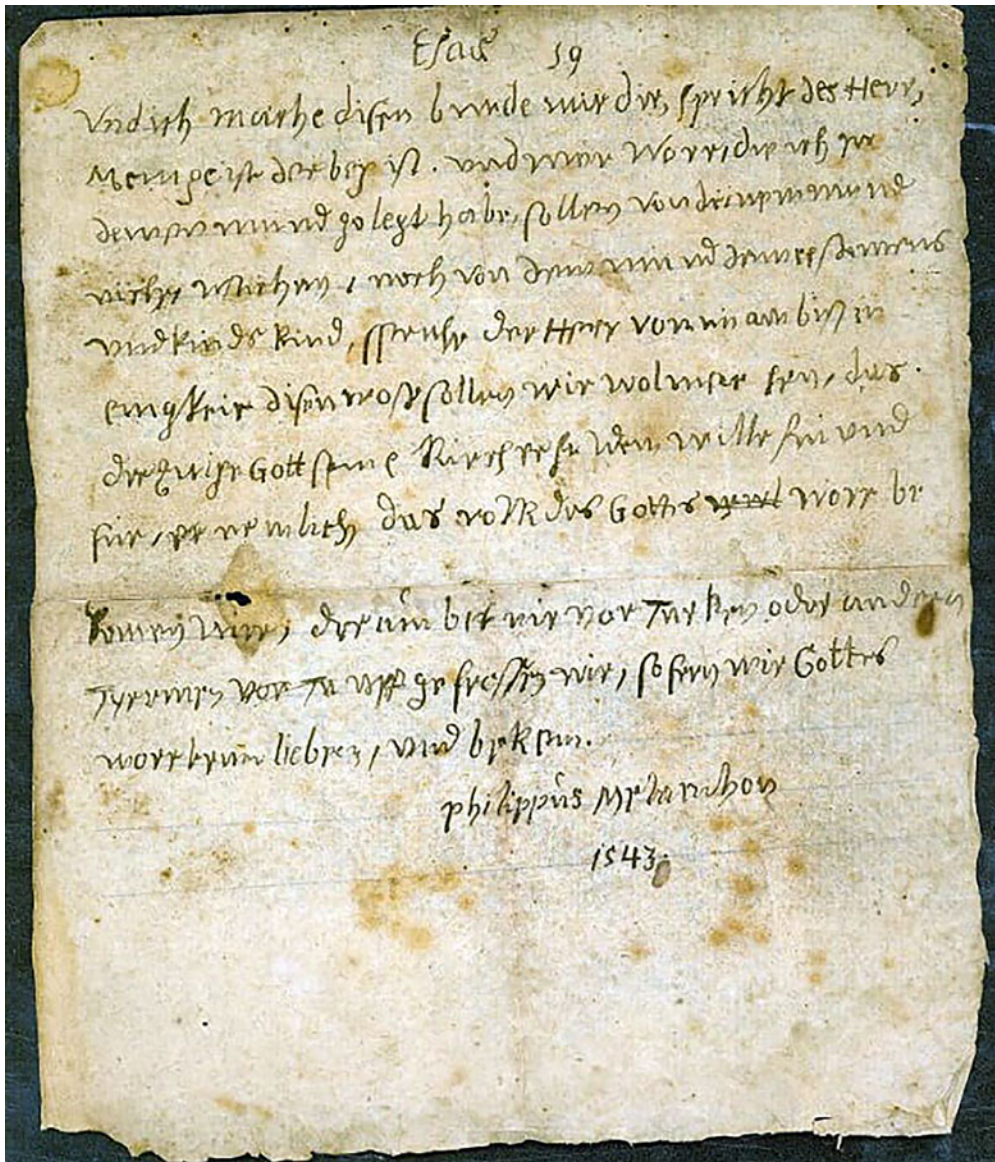 Esaie 59
Vnd ich mache disen bunde mit dir, spricht des Herr,
Mein geist der bey ist. vnd meine Wort, die ich in
deinen mund gelegt habe, sollen von deinem mund
nicht weichen, noch von dem mund deines samens
vnd kinds kind, spricht der Herr von nu an biß in
ewigkeit disen trost sollen wir wol
Gott seine Kirche wille sei vnd
für, nemlich das volk das Gottes wort be
komen wirt, darum vor Turken oder andern
Tyrannen gefressen wir, so fern wir Gottes
wort lieben, vnd beken.
philippus Melanthon
1543.